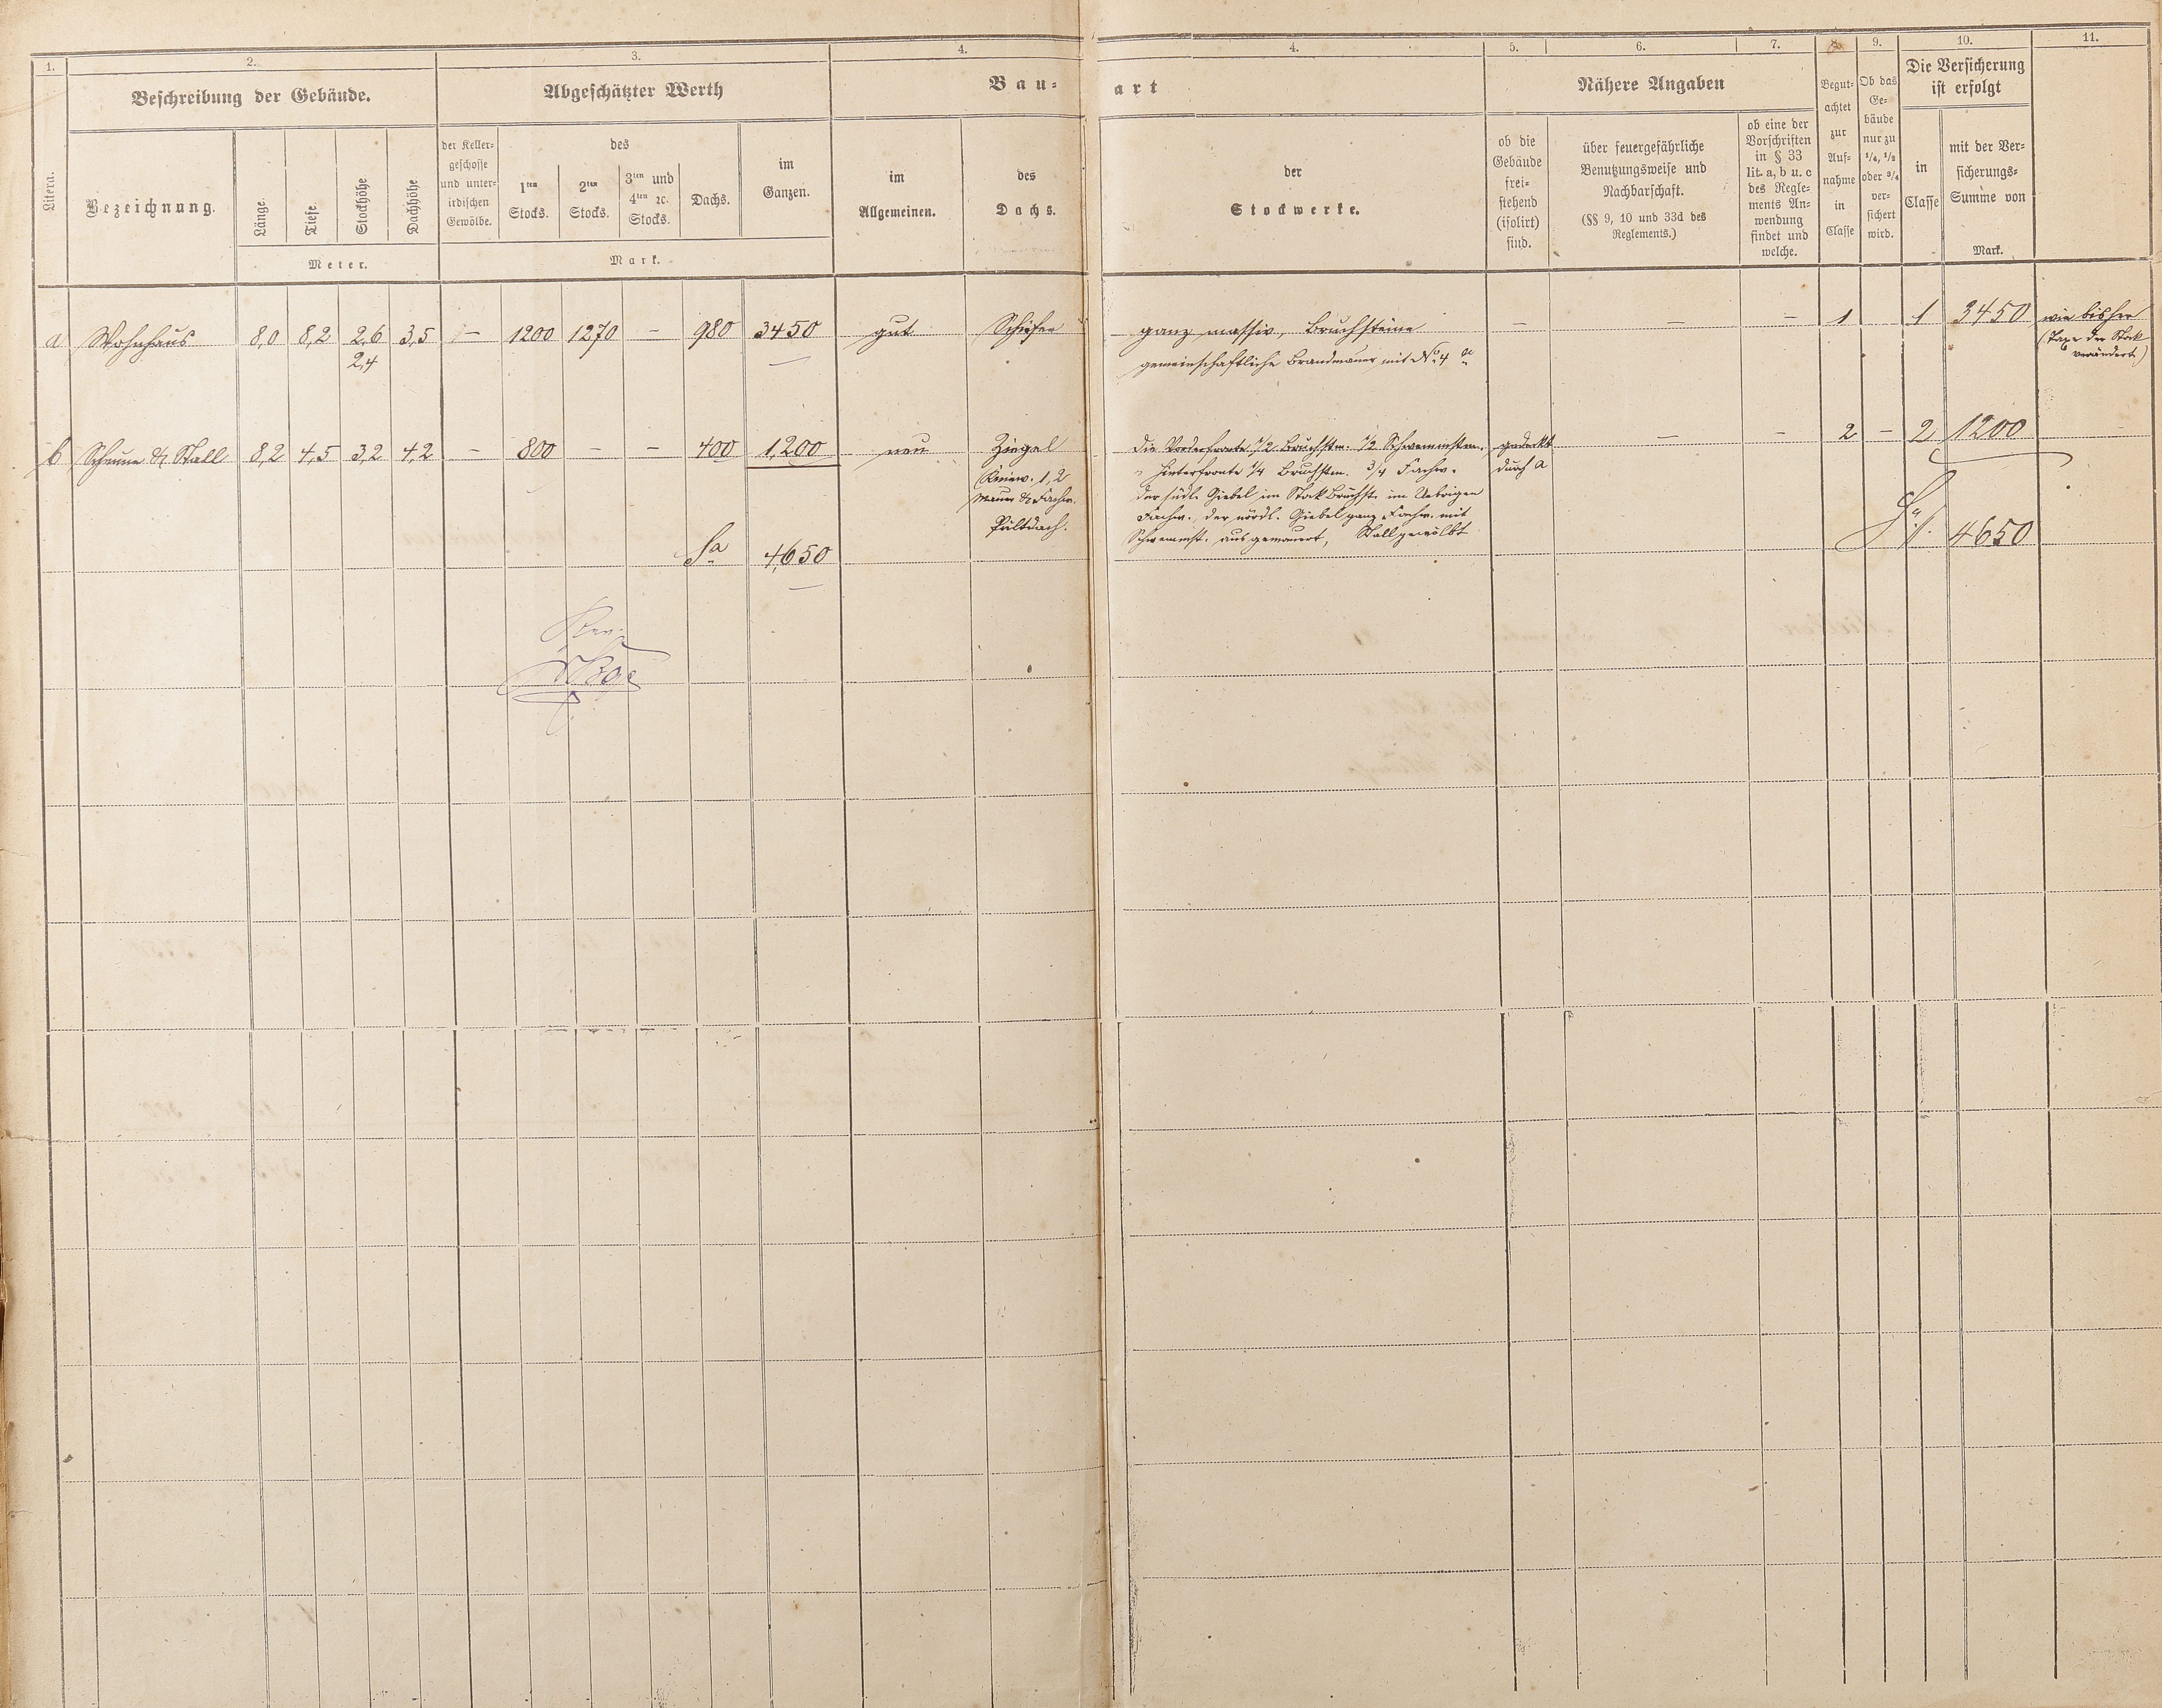 1. 2. 3. 4. 4. 5. 6. 7. 8. 9. 10. 11.
Litera.
Beschreibung der Gebäude.
Bezeichnung.
Länge.
Tiefe.
Stockhöhe
Dachhöhe
Meter.
Abgeschätzter Werth
der Keller-
geschosse
und unter-
irdischen
Gewölbe.
des
1ten
Stocks.
2ten
Stocks.
3ten und
4ten ꝛc.
Stocks.
Dachs.
im
Ganzen.
Mark.
Bau-
im
Allgemeinen.
des
Dachs.
art
der
Stockwerke.
Nähere Angaben
ob die
Gebäude
frei-
stehend
(isolirt)
sind.
über feuergefährliche
Benutzungsweise und
Nachbarschaft.
(§§ 9, 10 und 33d des
Reglements.)
ob eine der
Vorschriften
in § 33
lit. a, b u. c
des Regle-
ments An-
wendung
findet und
welche.
Begut-
achtet
zur
Auf-
nahme
in
Classe
Ob das
Ge-
bäude
nur zu
1/4, 1/2
oder 3/4
ver-
sichert
wird.
Die Versicherung
ist erfolgt
in
Classe
mit der Ver-
sicherungs-
Summe von
Mark.
a Wohnhaus 8,0 8,2 2,6 3,5 – 1200 1270 – 980 3450 gut Schiefer ganz massiv, Bruchsteine – – – 1 1 3450 wie bisher
2,4 gemeinschaftliche Brandmauer mit No. 4 a (Taxe der Stock
verändert)
b Scheune & Stall 8,2 4,5 3,2 4,2 – 800 – – 400 1,200 neu Ziegel Die Vorderfronte 1/2 Bruchstn. 1/2 Schwemmstn. gedeckt – – 2 – 2 1200
" Hinterfronte 1/4 Bruchstn. 3/4 Fachw. durch a
Mauer & Fachw. der südl. Giebel im Stock Bruchst. im Uebrigen
Pultdach. Fachw., der nördl. Giebel ganz Fachw. mit
Schwemmst. ausgemauert, Stall gewölbt
Sa 4,650
Sa 4650
Rev.